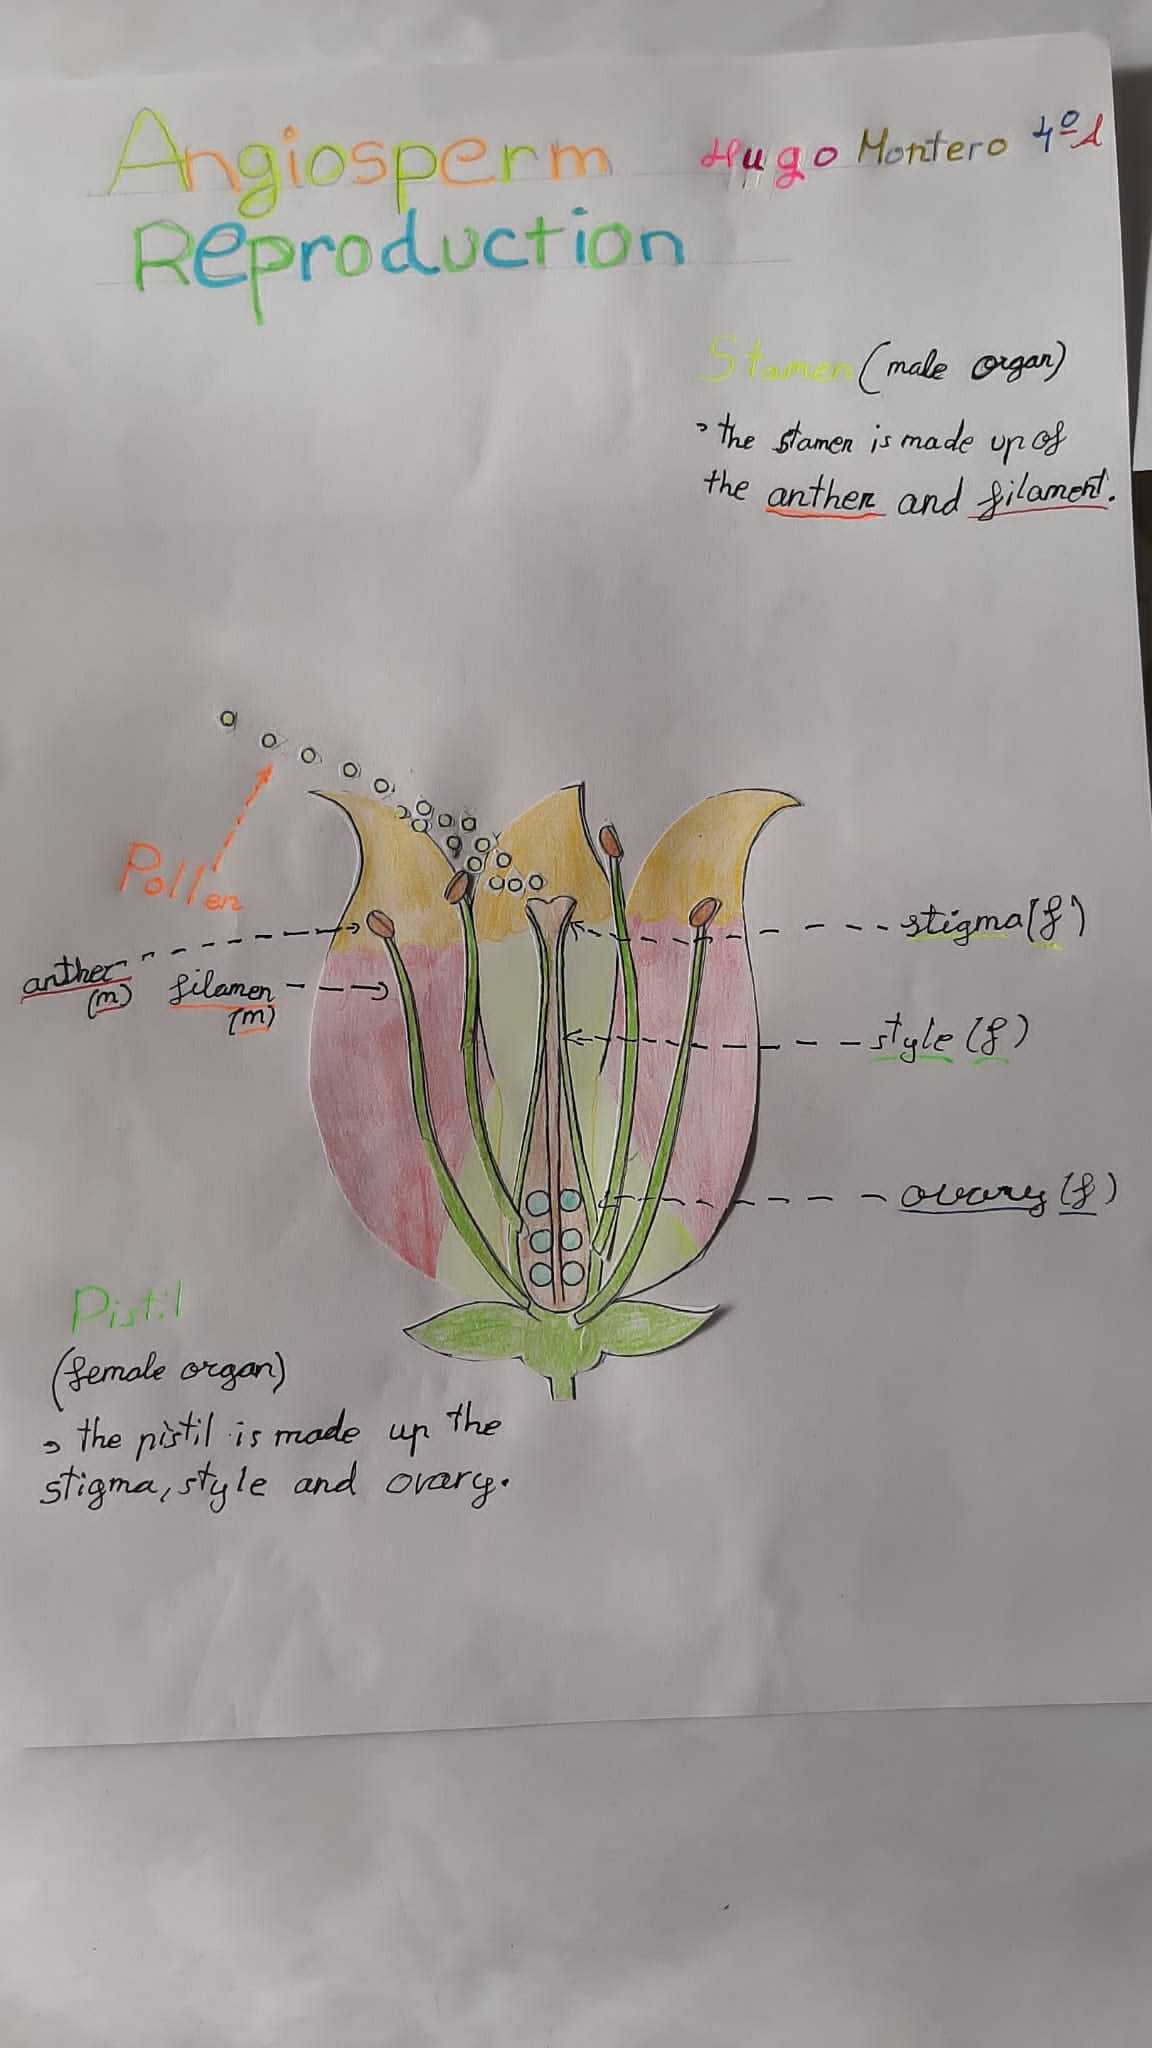 Angiosperm
Reproduction
Hugo Montero 4º A
Stamen (male organ)
the stamen is made up of
the anther and filament.
Pollen
anther
(m)
filamen
(m)
stigma (f)
style (f)
ovary (f)
Pistil
(female organ)
the pistil is made up the
stigma, style and ovary.